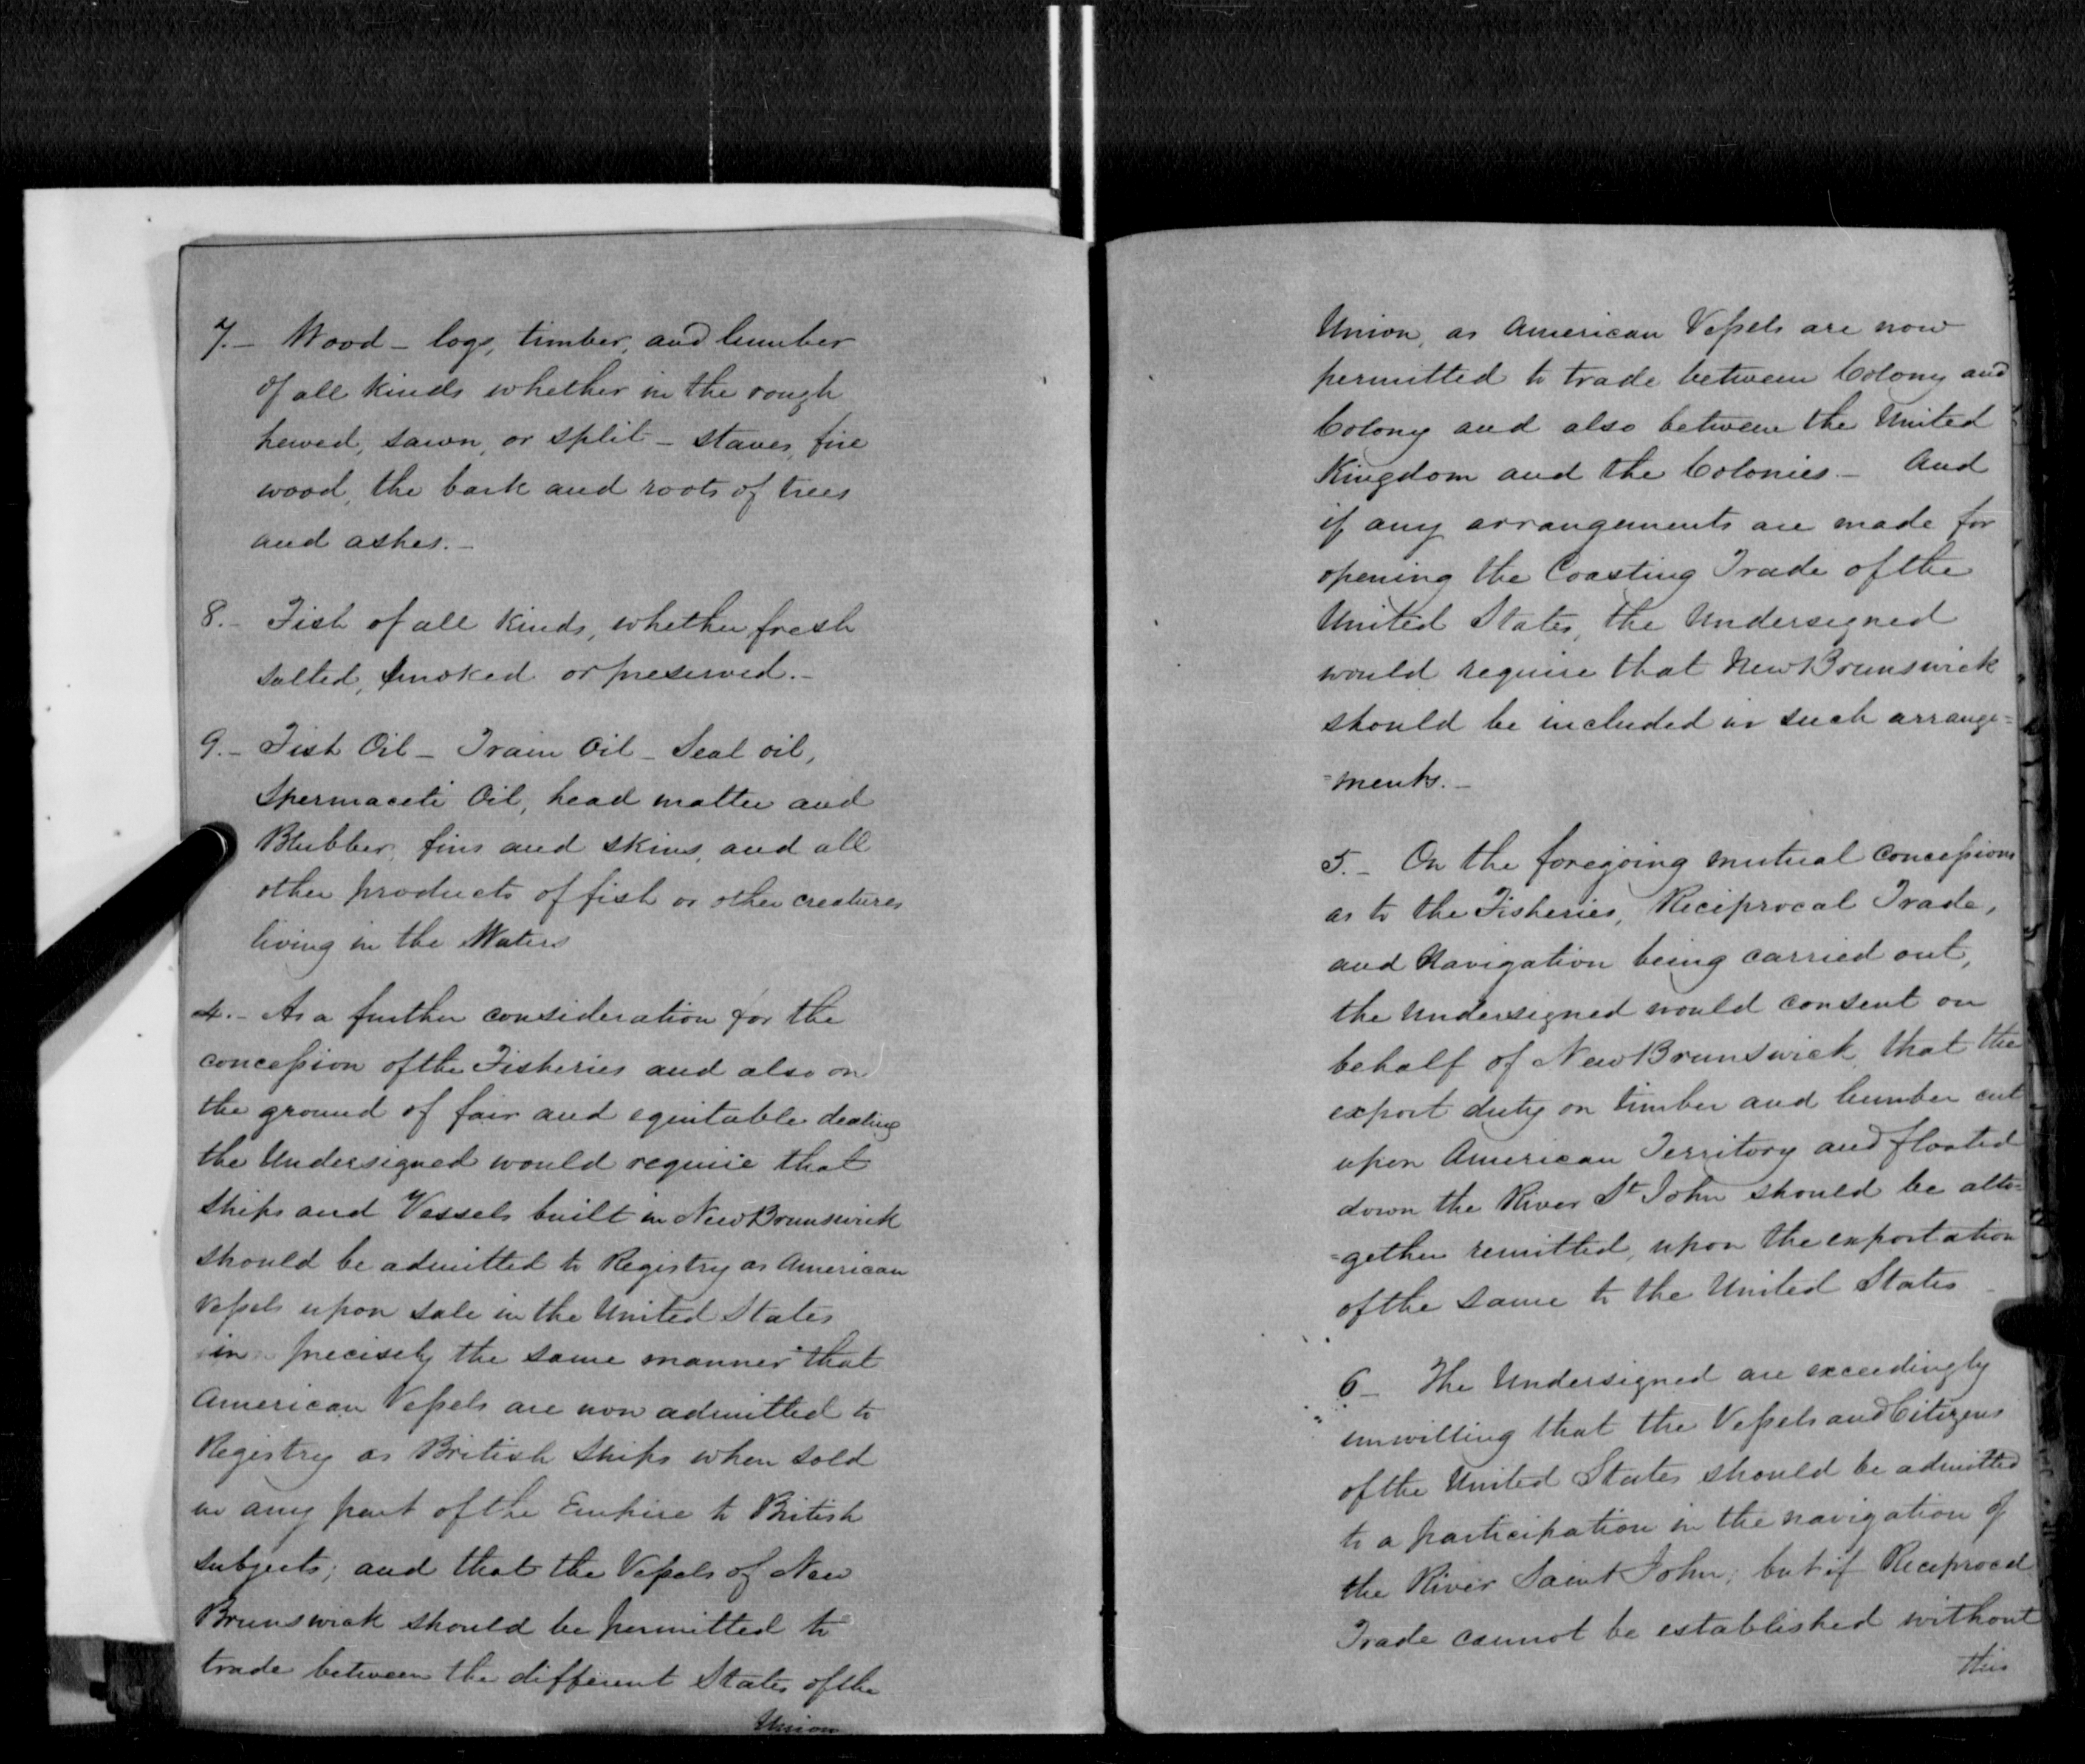 7.- Wood - logs, timber, and lumber
of all kinds whether in the rough
hewed, sawn, or split - staves, fire
wood, the bark and roots of trees
and ashes.-
8.- Fish of all kinds, whether fresh
salted, smoked or preserved.-
9.- Fish Oil - Train Oil - Seal oil,
Spermaceti Oil, head matter and
Blubber, fins and skins, and all
other products of fish or other creatures
living in the Waters
4.- As a further consideration for the
concession of the Fisheries and also on
the ground of fair and equitable dealing
the Undersigned would require that
Ships and Vessels built in New Brunswick
should be admitted to Registry as American
Vessels upon sale in the United States
in precisely the same manner that
American Vessels are now admitted to
Registry as British Ships when sold
in any part of the Empire to British
subjects; and that the Vessels of New
Brunswick should be permitted to
trade between the different States of the
Union
Union, as American Vessels are now
permitted to trade between Colony and
Colony and also between the United
Kingdom and the Colonies.- And
if any arrangements are made for
opening the Coasting Trade of the
United States, the Undersigned
would require that New Brunswick
should be included in such arrange=
=ments.-
5.- On the foregoing mutual concessions
as to the Fisheries, Reciprocal Trade,
and Navigation being carried out,
the Undersigned would consent on
behalf of New Brunswick, that the
export duty on timber and lumber cut
upon American Territory and floated
down the River St John should be alto=
=gether remitted, upon the exportation
of the same to the United States -
6- The Undersigned are exceedingly
unwilling that the Vessels and Citizens
of the United States should be admitted
to a participation in the navigation of
the River Saint John; but if Reciprocal
Trade cannot be established without
this